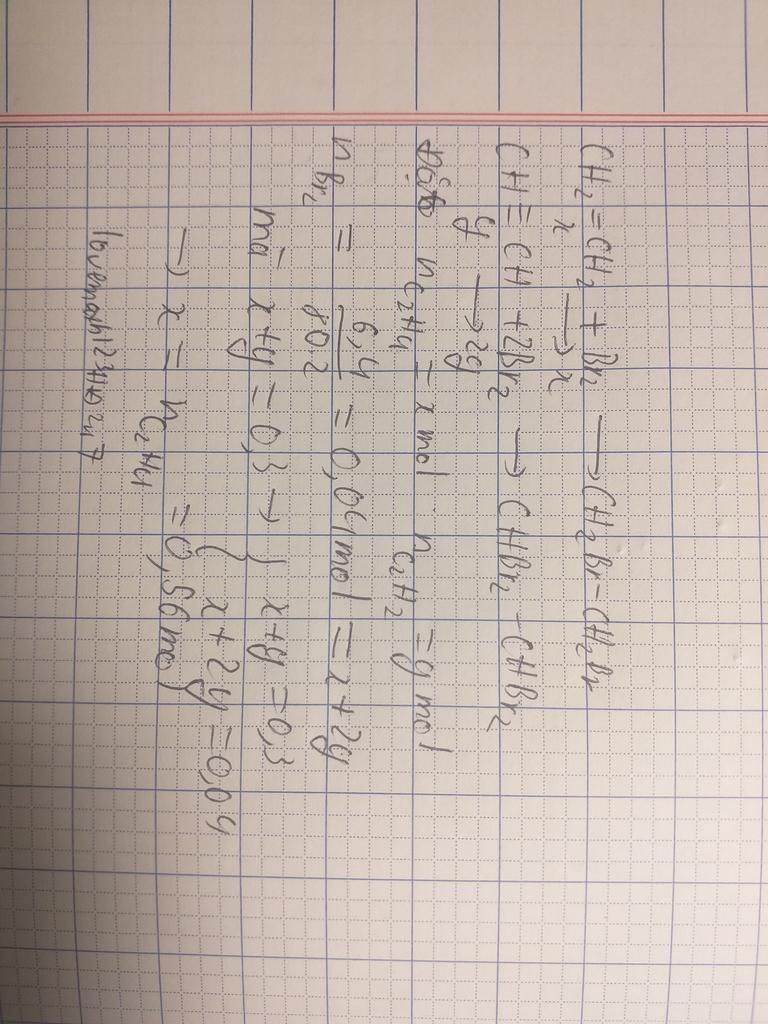 CH₂=CH₂ + Br₂ → CH₂Br-CH₂Br
x → x
CH≡CH + 2Br₂ → CHBr₂-CHBr₂
y → 2y
n C₂H₄ = x mol n C₂H₂ = y mol
n Br₂ = 6,4 / 80.2 = 0,04 mol = x + 2y
mà x+y = 0,3 → { x+y = 0,3
{ x+2y = 0,04
→ x = n C₂H₄ = 0,56 mol